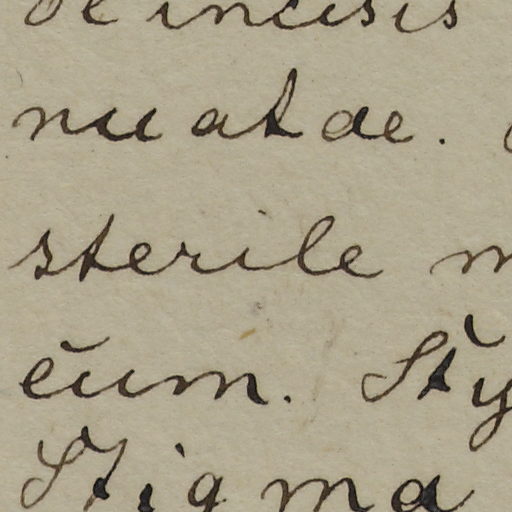 incisis
nuatae.
sterile
cum. Sty
Stigma